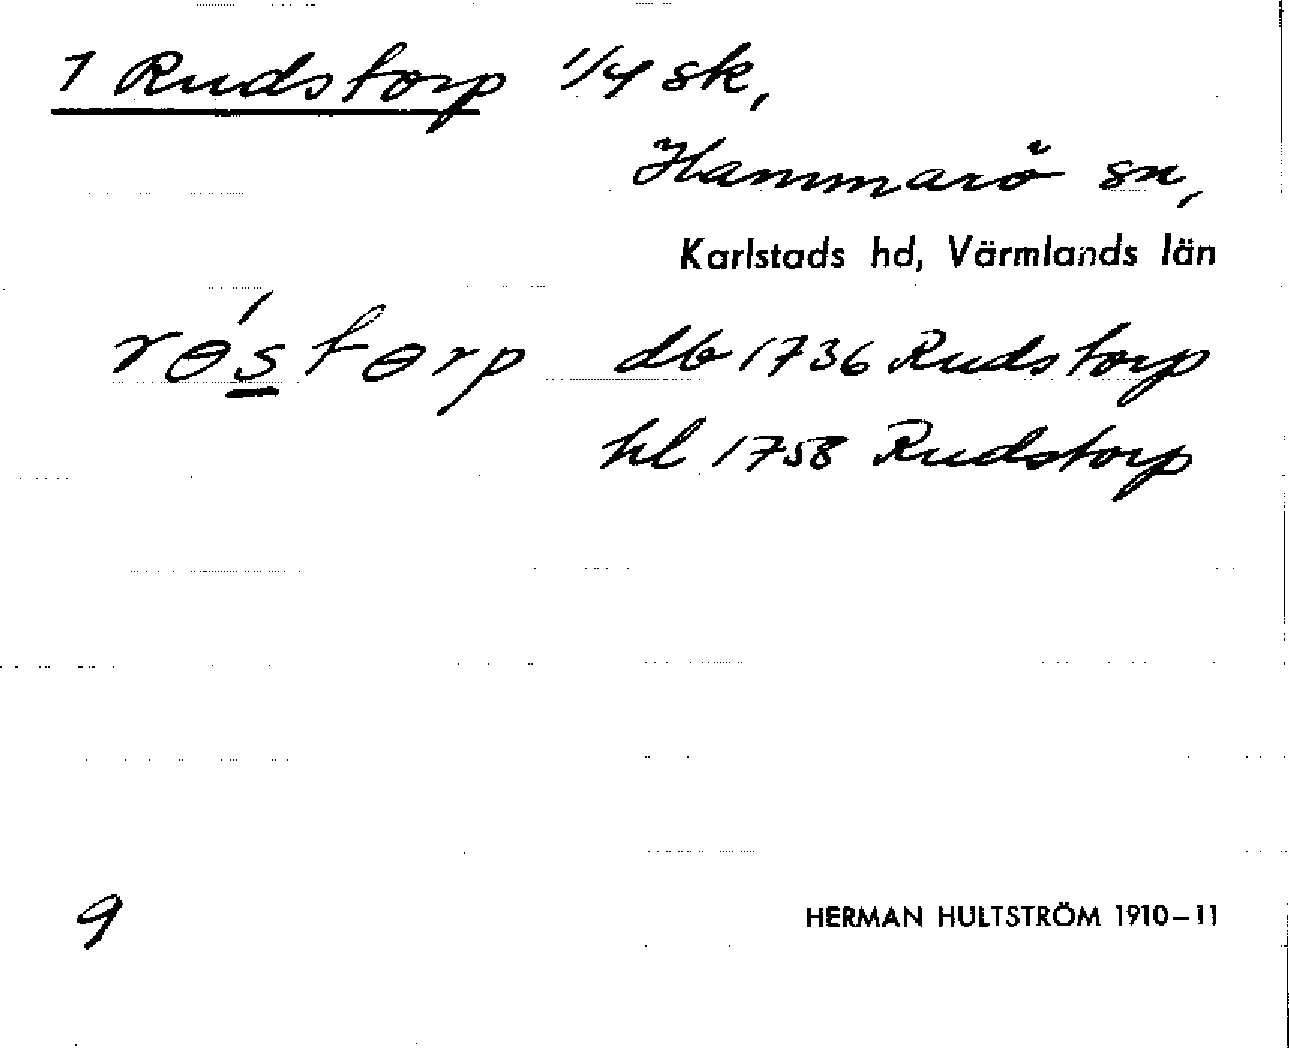 1 Rudstorp 1/4 sk,
Hammarö sn,
Karlstads hd, Värmlands län
rɵ́storp db 1736 Rudstorp
hl 1758 Rudstorp
9
HERMAN HULTSTRÖM 1910-11